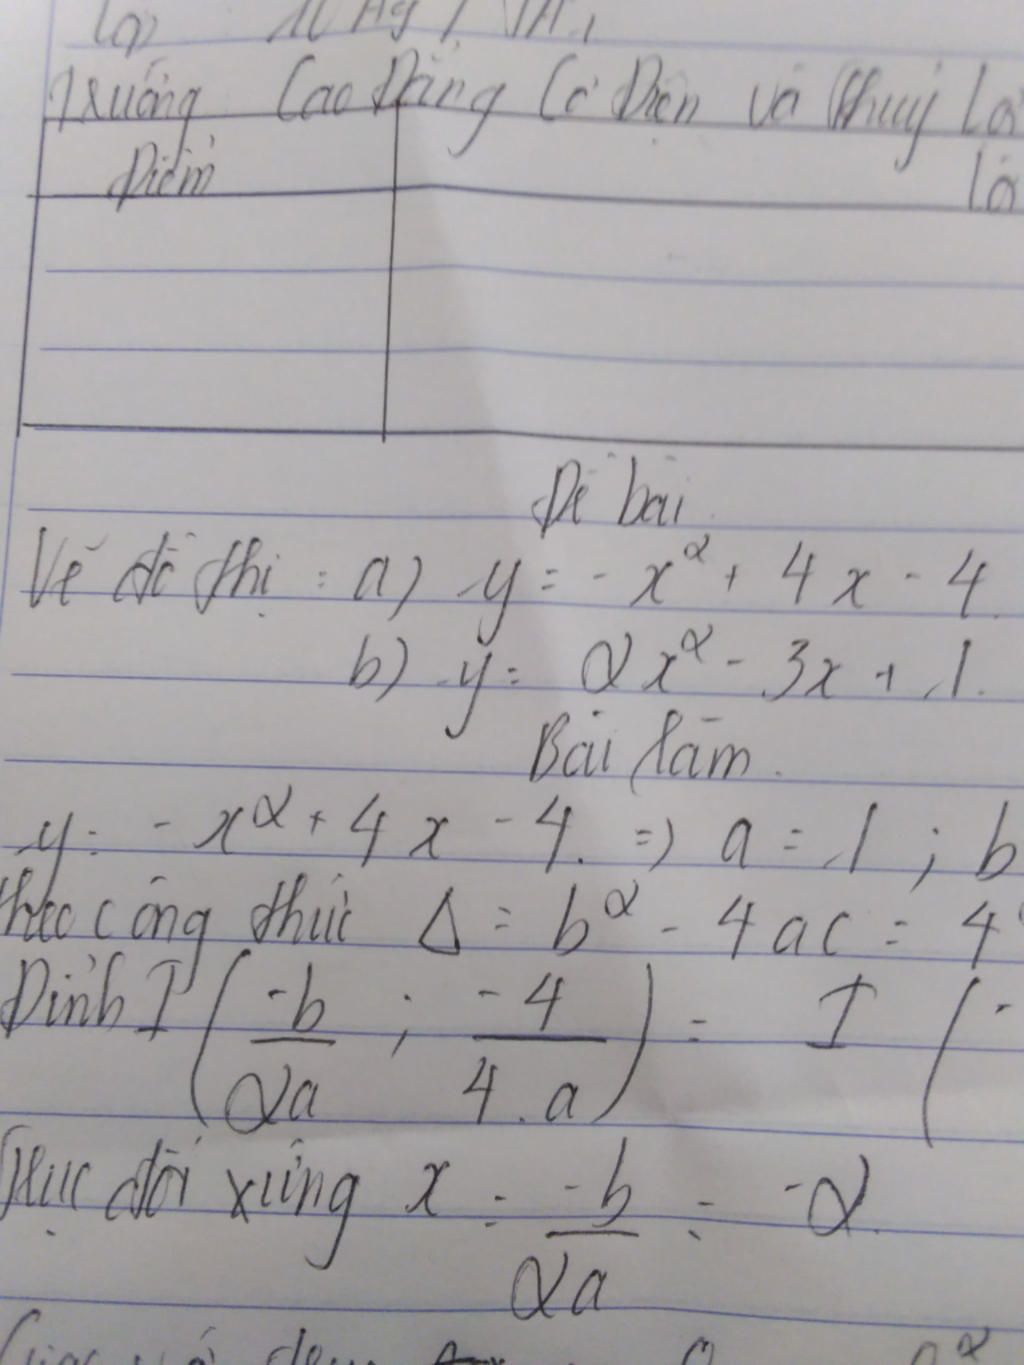 Lớp
Trường Cao Đẳng Cơ Điện và Thuỷ Lợi
Điểm Lờ
Đề bài
Vẽ đồ thị : a) y = - x² + 4x - 4.
b) y = 2x² - 3x + 1.
Bài làm.
y = - x² + 4x - 4. => a = 1 ; b
theo công thức Δ = b² - 4ac = 4
Đỉnh I ( -b/2a ; -4/4.a ) = I ( -
Trục đối xứng x = -b/2a = -2.